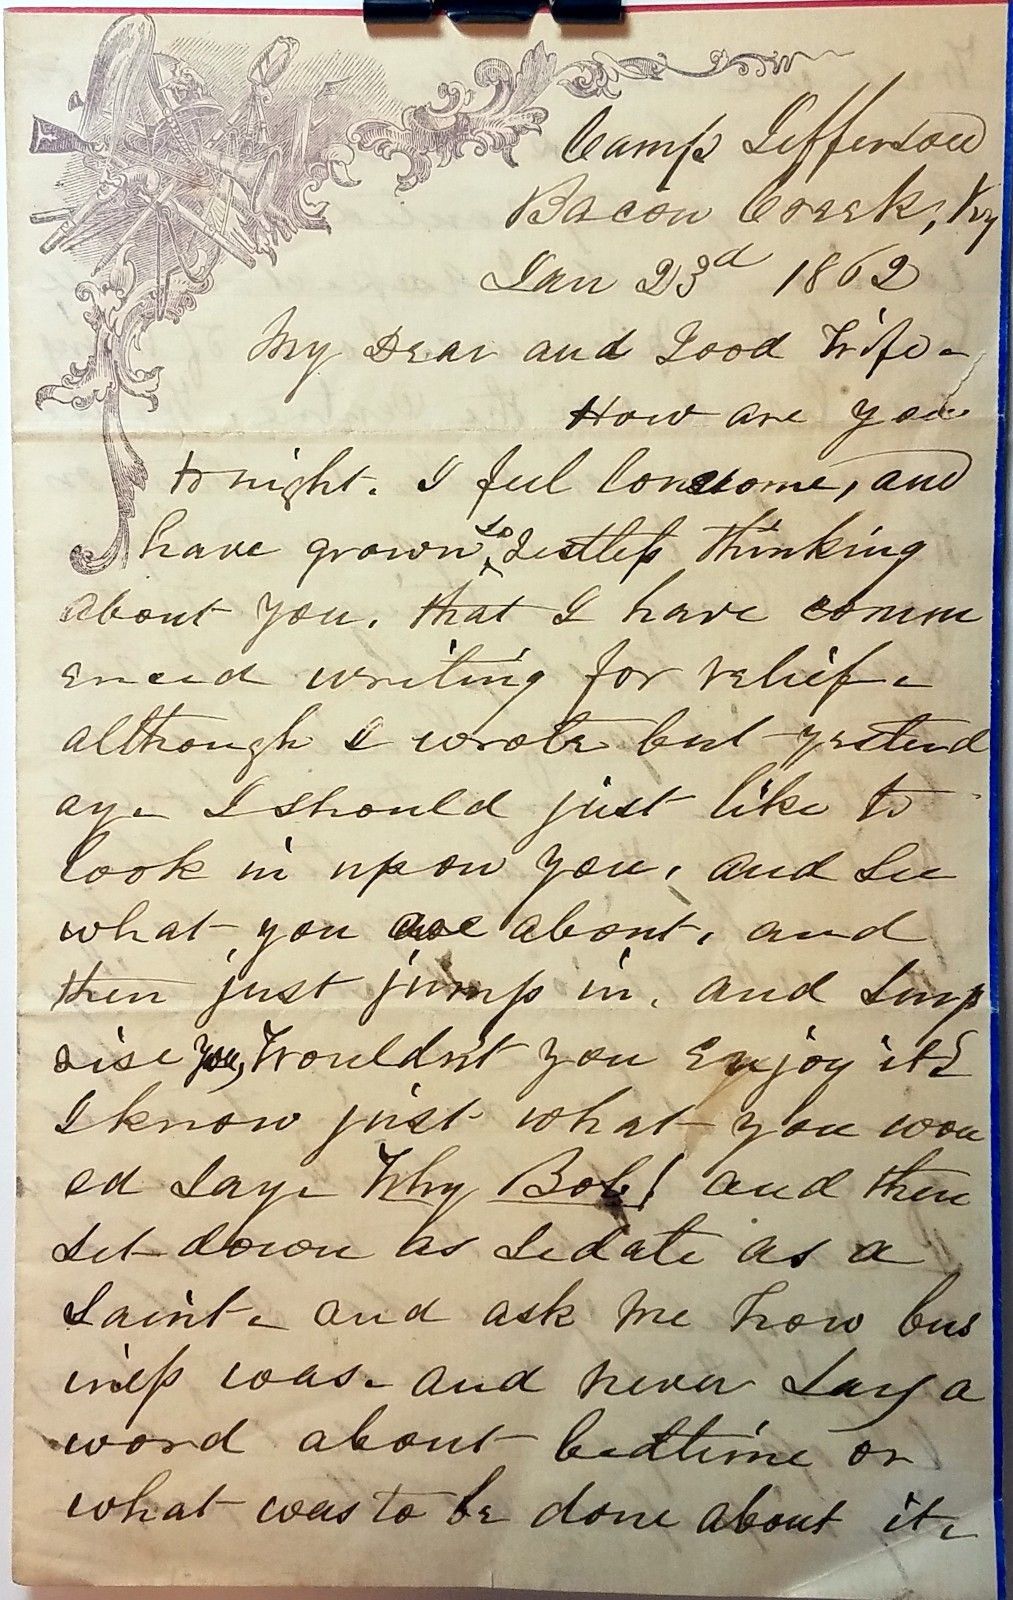 Camp Jefferson
Bacon Creek, Ky
Jan 23d 1862
My Dear and Good Wife
How are you
tonight. I feel lonesome, and
have grown so restless thinking
about you, that I have comm
enced writing for relief.
although I wrote but yesterd
ay. I should just like to
look in upon you, and see
what you are about, and
then just jump in, and surp
rise you, Wouldn't you enjoy it?
I know just what you wou
ld say. Why Bob! and then
set down as sedate as a
Saint. and ask me how bus
iness was. and never say a
word about bedtime or
what was to be done about it.